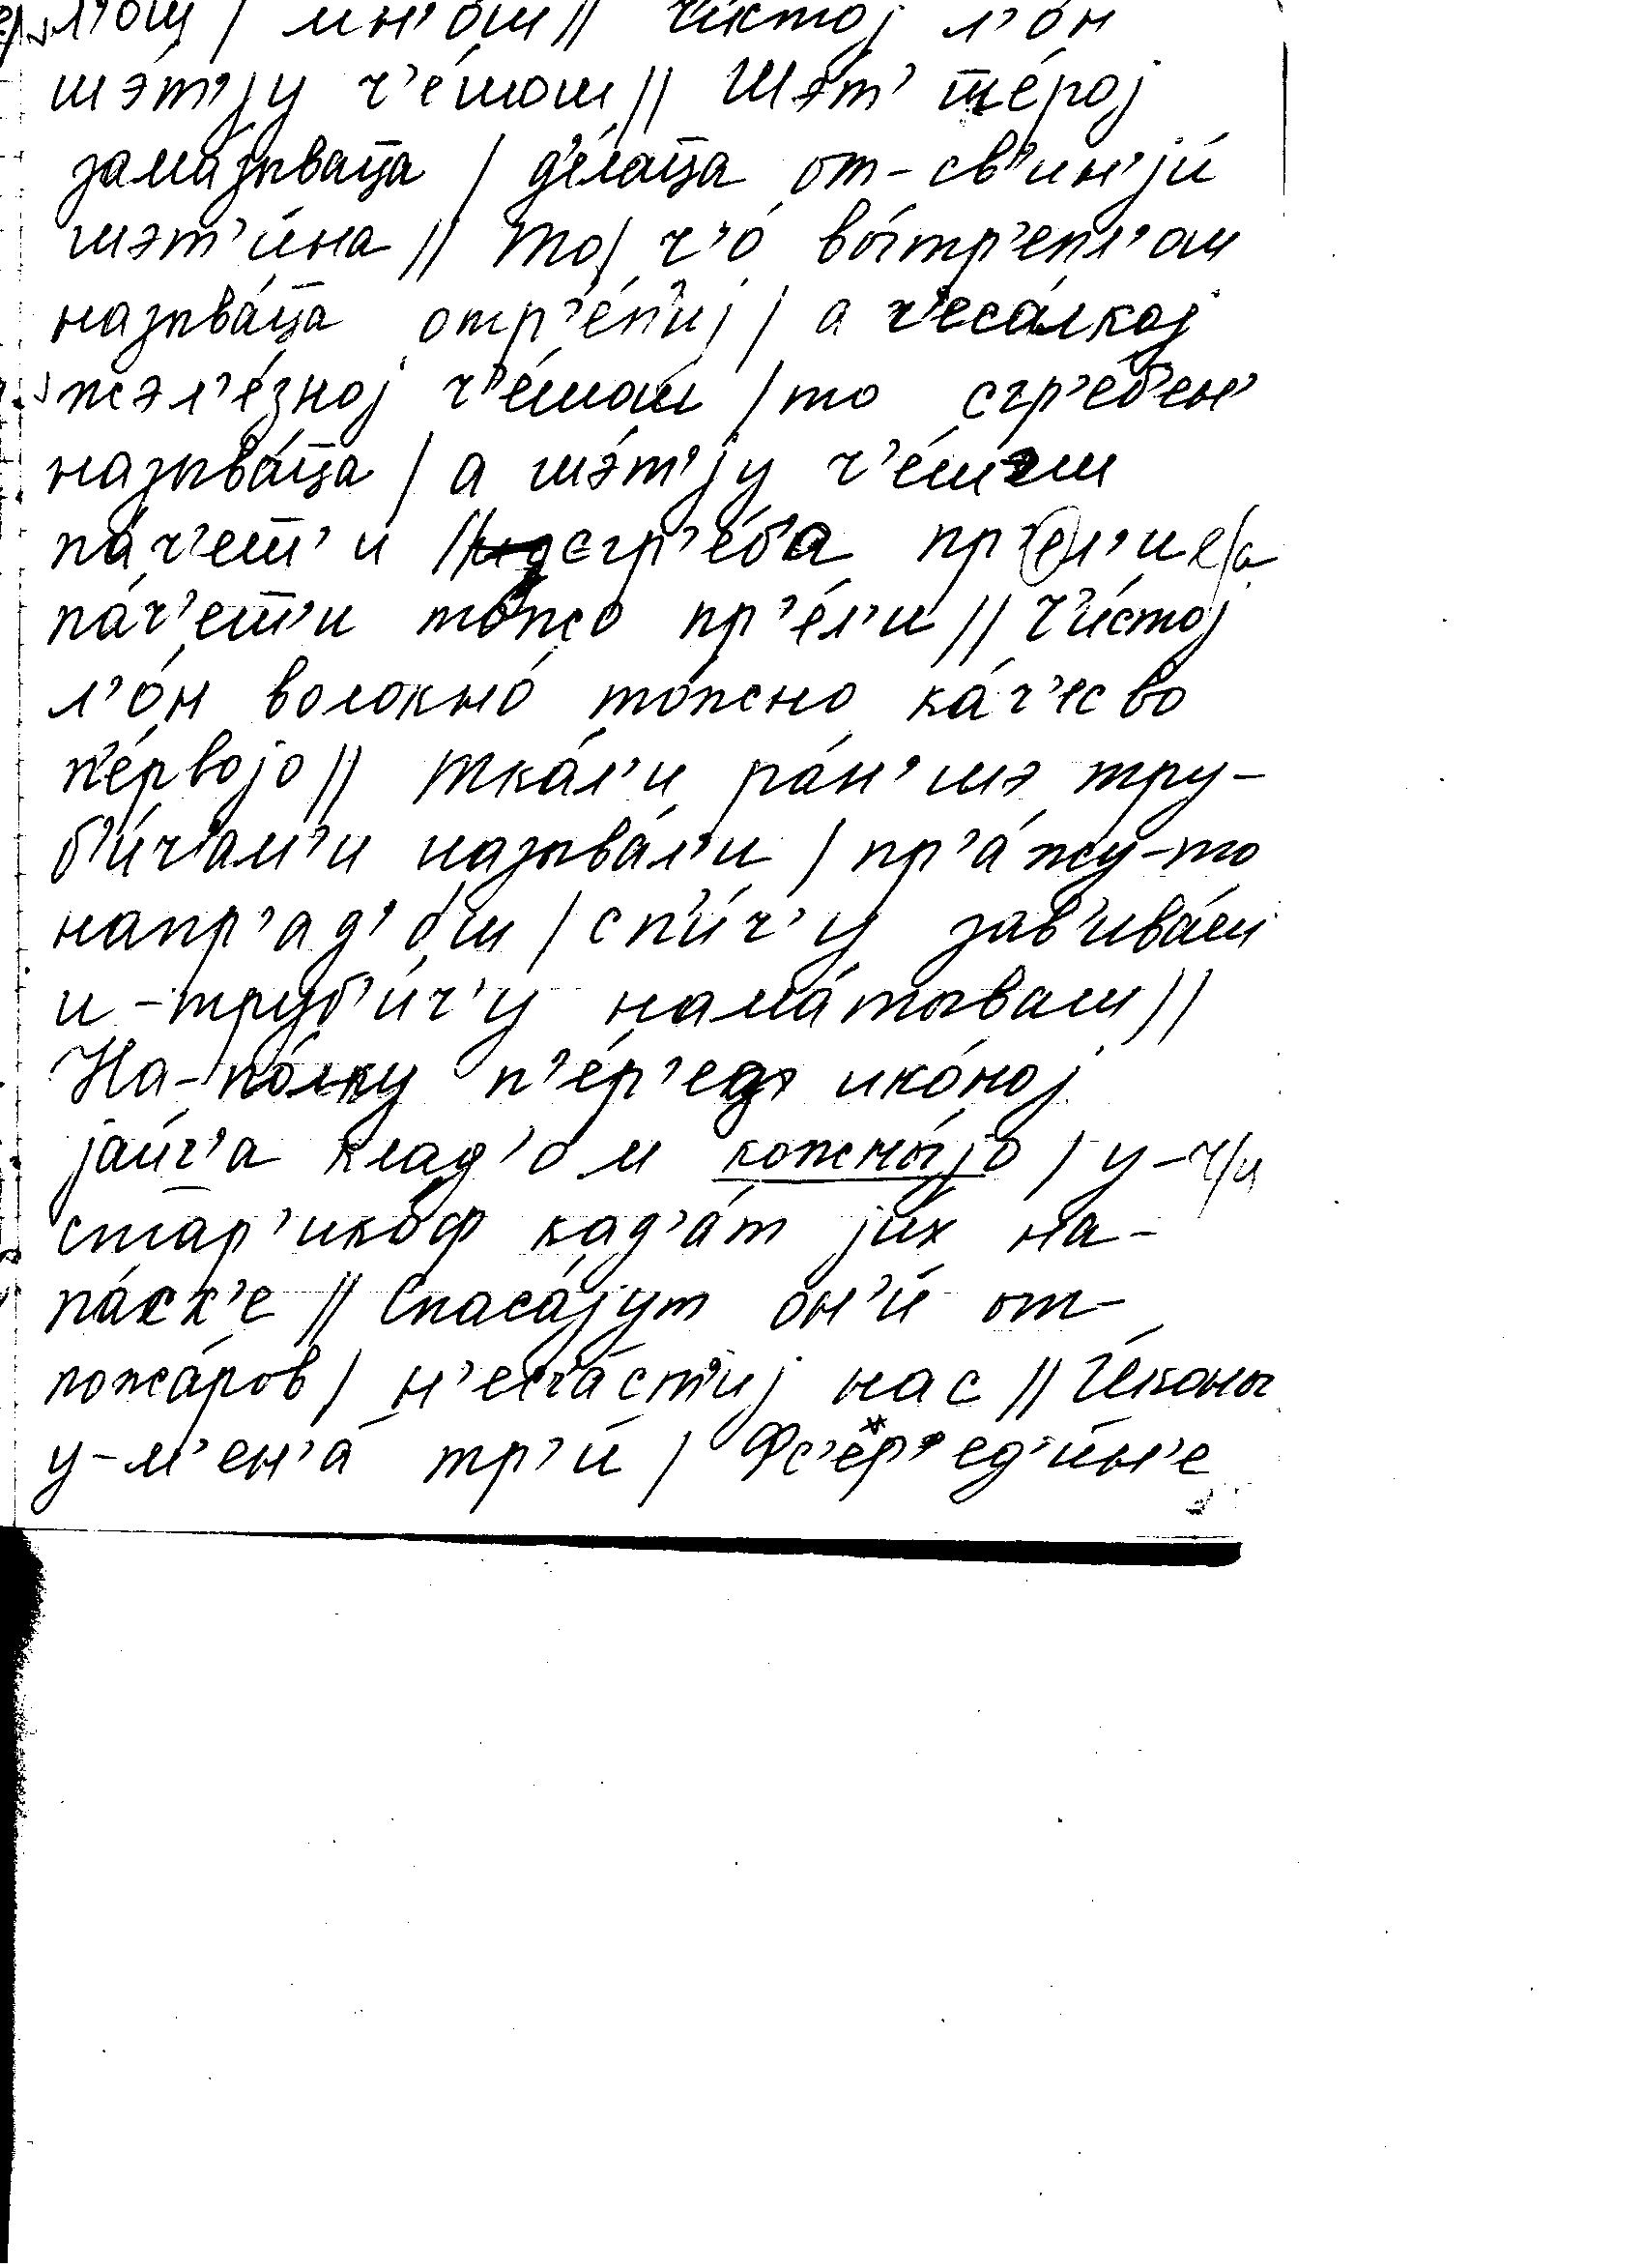 л'ош / мн'ош // ч'и́стој л'о́н
шэ́т'ју ч'е́шош // Шэт' т̅е́рој
зама́зывац̅а / д'е́лац̅а от-св'ин'ји́
шэт'и́на // То / ч'о́ вы́тр'епл'ош
называ́ц̅а отр'е́п'иј / а ч'еса́лкој
жэл'е́зној ч'е́шош / то сгр'е́б'ен'
называ́ц̅а / а шэ́т'ју ч'е́шэш
па́ч'ет̅'и // сгр'е́б'а пр'е́л'и е/а
па́ч'ет̅'и то́жо пр'е́л'и // Ч'и́стој
л'о́н волокно́ то́жно ка́ч'ево
п'е́рвојо // Тка́л'и ра́н'шэ тру-
б'и́ч'ам'и называ́л'и / пр'а́жу-то
напр'ад'о́ш / сп'и́ч'у зав'ива́ш
и-труб'и́ч'у нама́тываш //
На-по́лку п'е́р'ед ико́ној
јаи́ч'а клад'о́м кожны́јо / у- ч/и
стар'ико́ф кад'а́т ји́х на-
па́ск'е // Спаса́јут он'и́ от-
пожа́ров / н'есч'а́ст'иј нас // И́коны
у-м'ен'а́ тр'и́ / Фс'ер'ед'и́н'е